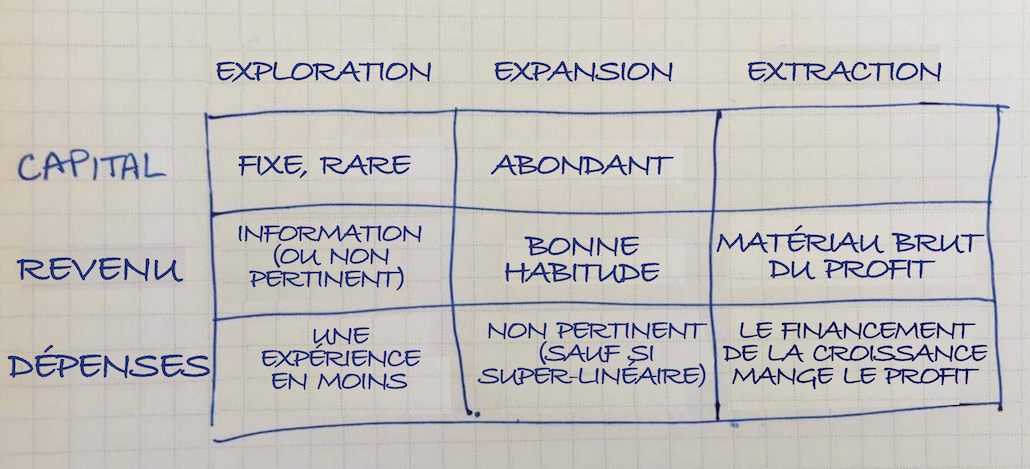 EXPLORATION EXPANSION EXTRACTION
CAPITAL FIXE, RARE ABONDANT
REVENU
INFORMATION
(OU NON
PERTINENT)
BONNE
HABITUDE
MATÉRIAU BRUT
DU PROFIT
DÉPENSES
UNE
EXPÉRIENCE
EN MOINS
NON PERTINENT
(SAUF SI
SUPER-LINÉAIRE)
LE FINANCEMENT
DE LA CROISSANCE
MANGE LE PROFIT